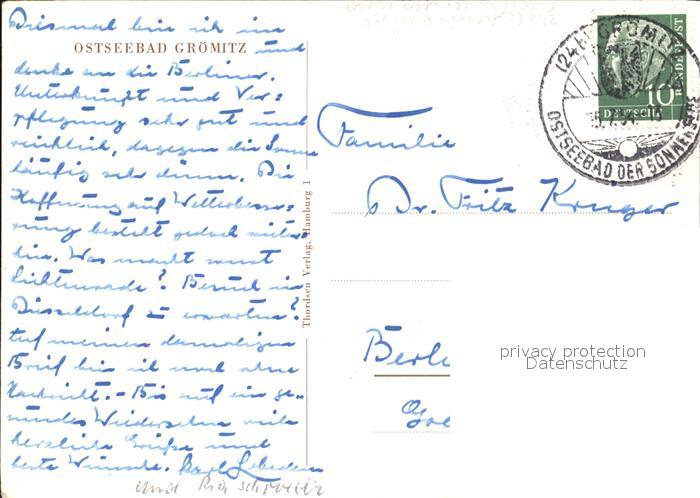 Diesmal bin ich im
OSTSEEBAD GRÖMITZ und
denke an die Berliner.
Unterkunft und Ver-
pflegung sehr gut und
reichlich, dagegen die Sonne
häufig sehr dünn. Die
Hoffnung auf Wetterbesse-
rung besteht jedoch weiter-
hin. Was macht sonst
Lichtenrade? Besuch in
Düsseldorf zu erwarten?
Auf meinen damaligen
Brief bin ich noch ohne
Nachricht. - Bis auf ein ge-
sundes Wiedersehn viele
herzliche Grüße und
beste Wünsche. Karl
und
Thordsen Verlag, Hamburg 1
(24b) GRÖMITZ
OSTSEEBAD DER SONNENSEITE
10
DEUTSCHE
BUNDESPOST
Familie
Dr. Fritz Kruger
Berli
privacy protection
Datenschutz